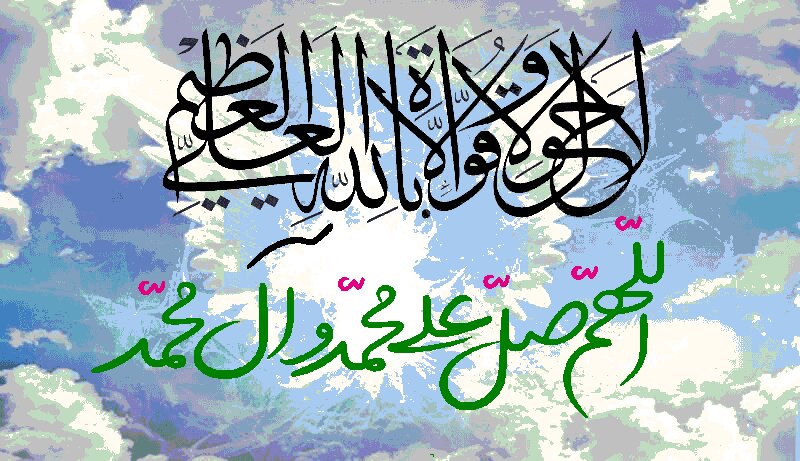 لا حول ولا قوة إلا بالله العلي العظيم
اللّهمّ صلّ علی محمّد وآل محمّد